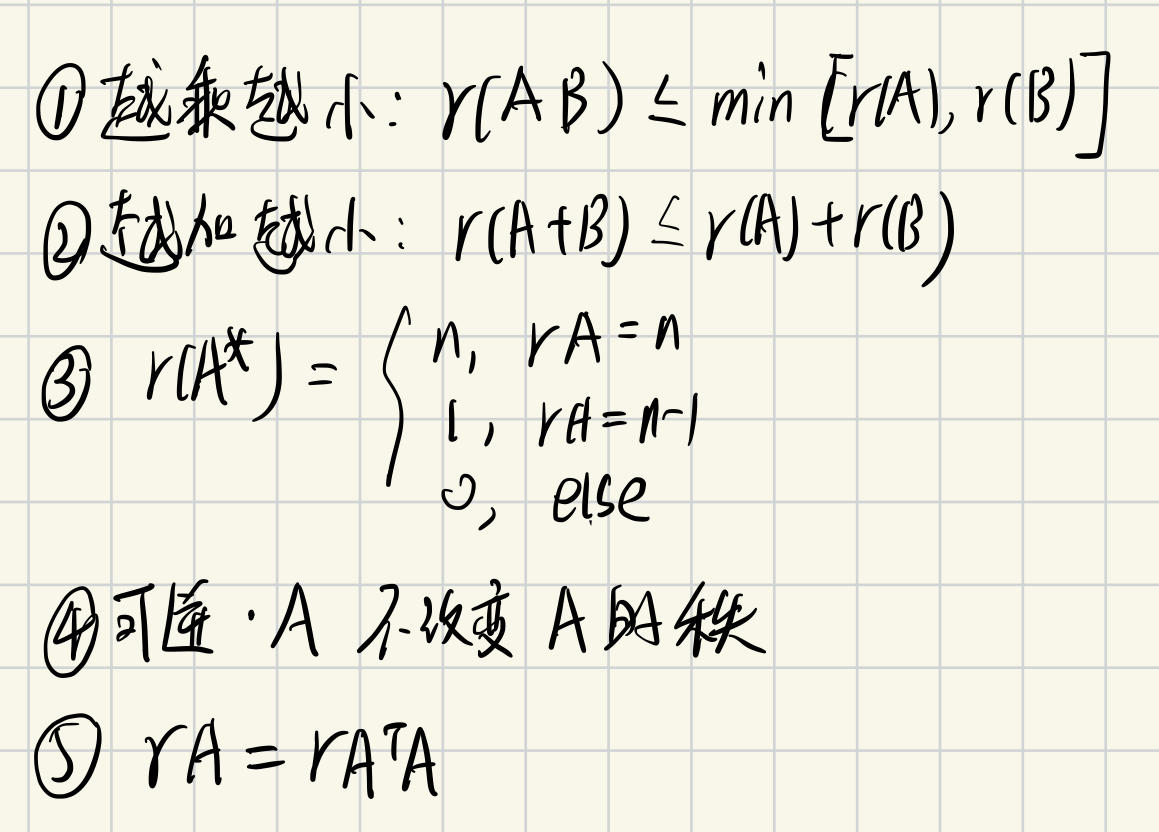 ① 越乘越小: r(AB) ≤ min [r(A), r(B)]
② 越加越小: r(A+B) ≤ r(A)+r(B)
③ r(A*) = { n, rA=n
1, rA=n-1
0, else
④ 可逆·A 不改变 A 的秩
⑤ rA = rAᵀA